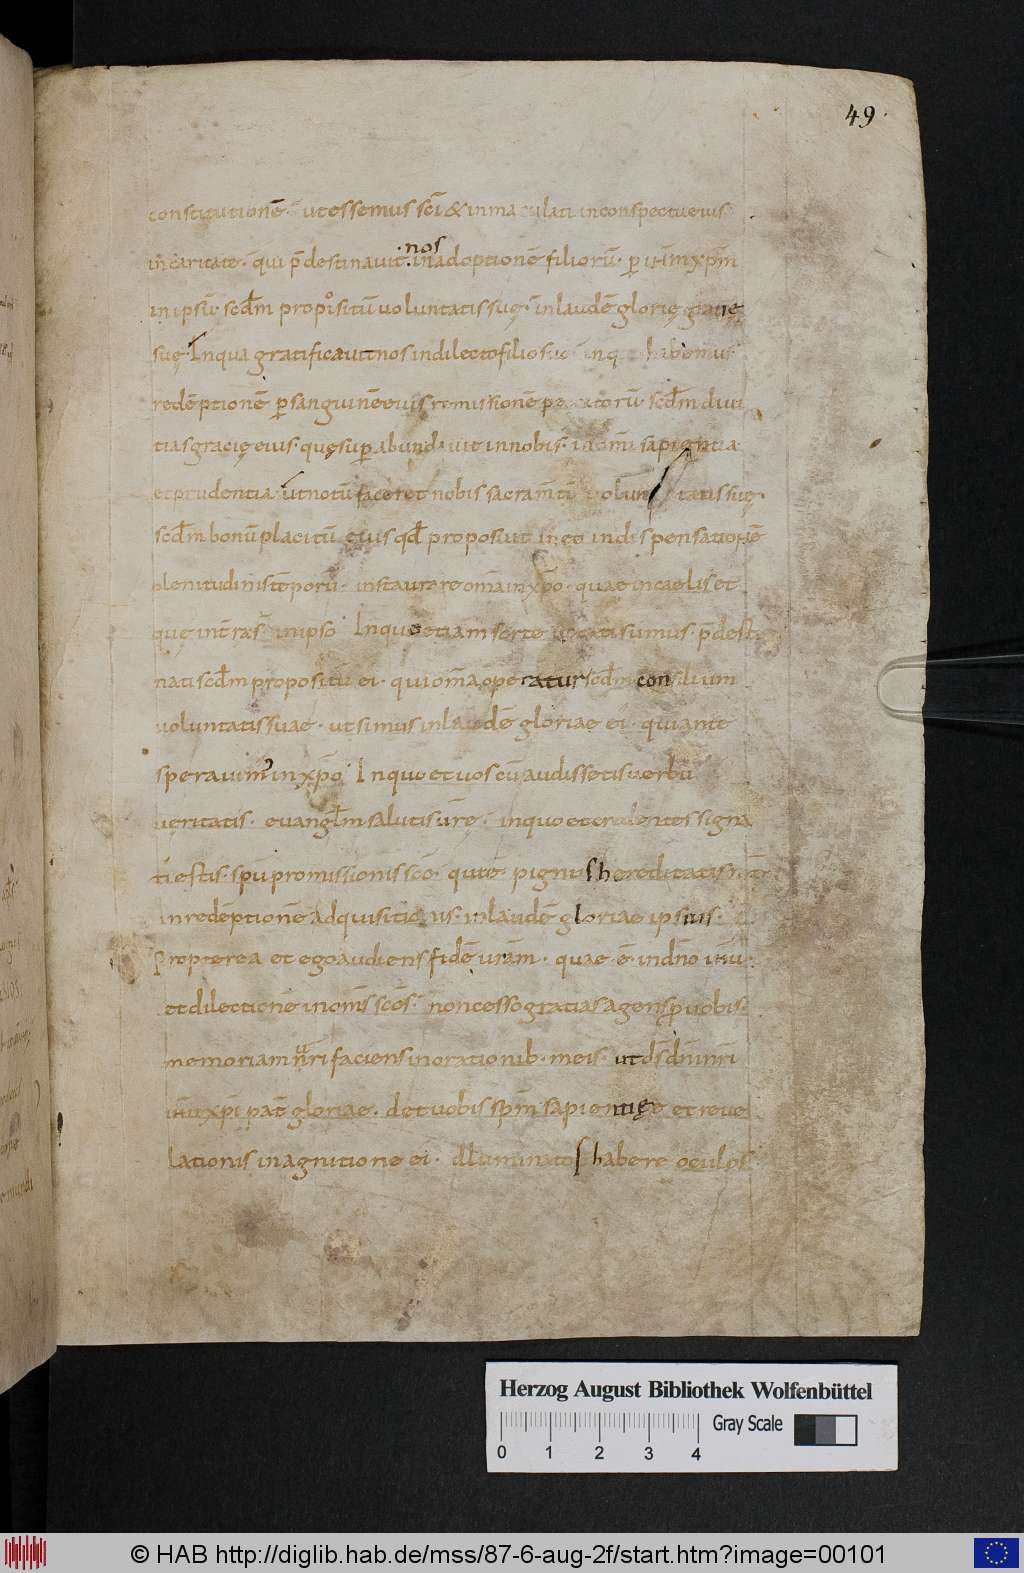 49.
constitutionē. ut essemus sc̄i & inmaculati inconspectu eius
in caritate. qui p̄destinavit .nos inadoptionē filiorū. per iħm xp̄m
in ipsū. scd̄m propositū voluntatis suę. in laudē glorię gratię
suę. In qua gratificavit nos in dilecto filio suo in q habemus
redēptionē per sanguinē eius remissionē peccatorū scd̄m divi
tias gracię eius. quę superabundavit in nobis. in om̄i sapientia
et prudentia. ut notū faceret nobis sacram̄tū voluntatis suę.
scd̄m bonū placitū eius qđ proposuit in eo in dispensationē
plenitudinis tēporū. instaurare om̄a in xp̄o. quae in caelis et
quę in t̄ra s̄. in ipso. In quo etiam sorte vocati sumus. p̄desti
nati scd̄m propositū ei. qui om̄a operatur scd̄m consilium
voluntatis suae. ut simus in laudē gloriae ei. qui ante
speravim' in xp̄o. In quo et vos cū audissetis verbū
veritatis. evangl̄m salutis vr̄ę. in quo et credentes signa
ti estis. sp̄u promissionis sc̄o. qui ē pignus hereditatis nr̄ę
in redēptionē adquisitionis. in laudē gloriae ipsius.
Propterea et ego audiens fidē vr̄am. quae ē in dn̄o iħu.
et dilectionē in om̄s sc̄os. non cesso gratias agens p vobis.
memoriam vr̄i faciens in orationib. meis. ut d̄s dn̄i nr̄i
iħu xp̄i pat̄ gloriae. det vobis sp̄m sapientię et reve
lationis in agnitione ei. illuminatos habere oculos
Herzog August Bibliothek Wolfenbüttel
Gray Scale
0 1 2 3 4
© HAB http://diglib.hab.de/mss/87-6-aug-2f/start.htm?image=00101